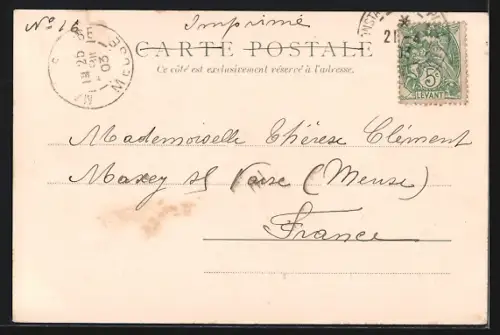 No 16 Imprimé
CARTE POSTALE
Ce côté est exclusivement réservé à l'adresse.
5c
LEVANT
21
MEUSE
03
Mademoiselle Thérèse Clément
Maxey s/ Vaise (Meuse)
France